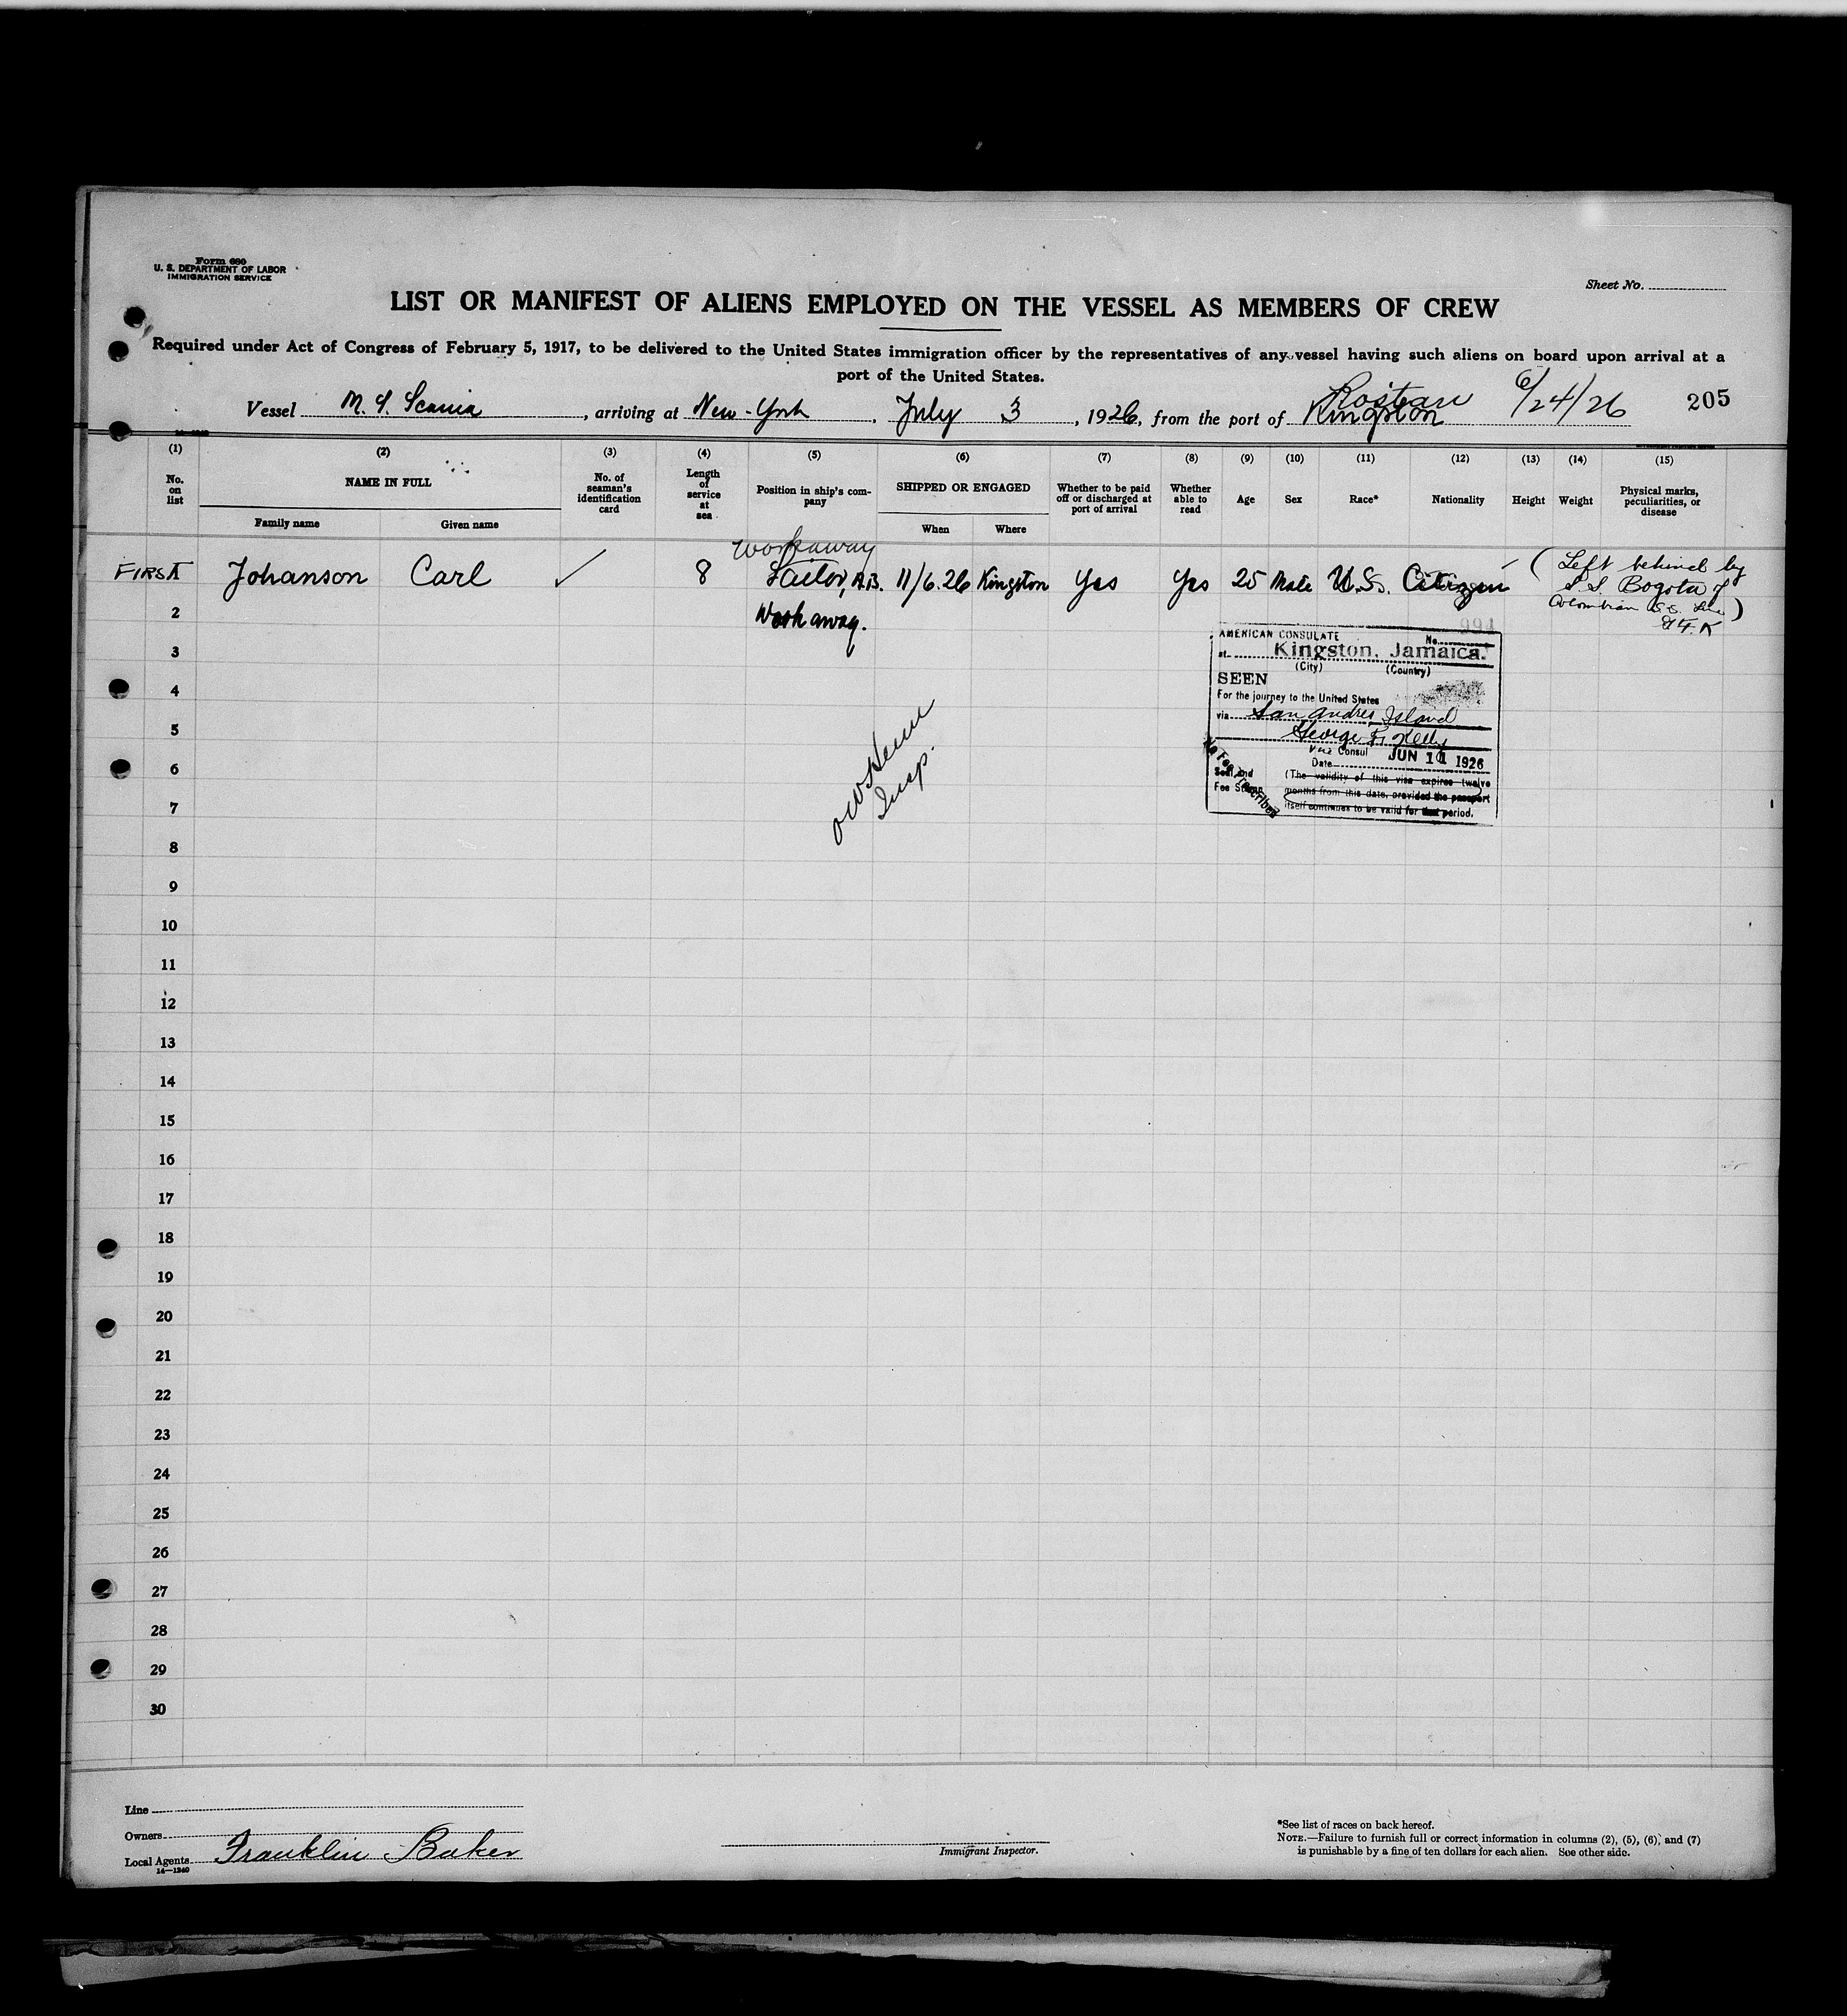 Form 680
U. S. DEPARTMENT OF LABOR
IMMIGRATION SERVICE
Sheet No.
LIST OR MANIFEST OF ALIENS EMPLOYED ON THE VESSEL AS MEMBERS OF CREW
Required under Act of Congress of February 5, 1917, to be delivered to the United States immigration officer by the representatives of any vessel having such aliens on board upon arrival at a
port of the United States.
Vessel M. S. Scania, arriving at New-York, July 3, 1926, from the port of Kingston 6/24/26 205
(1) (2) (3) (4) (5) (6) (7) (8) (9) (10) (11) (12) (13) (14) (15)
No. on list
NAME IN FULL
Family name Given name
No. of seaman's identification card
Length of service at sea
Position in ship's company
SHIPPED OR ENGAGED
When Where
Whether to be paid off or discharged at port of arrival
Whether able to read
Age Sex Race* Nationality Height Weight
Physical marks, peculiarities, or disease
Workaway
FIRST Johanson Carl ✓ 8 Sailor, A.B. 11/6.26 Kingston Yes Yes 25 Male U.S. Citizen (Left behind by
S.S. Bogota of
Colombian S.S. Line)
G F. K
2 Workaway.
994
AMERICAN CONSULATE No.
at Kingston, Jamaica.
(City) (Country)
SEEN
For the journey to the United States
via San Andres Island
George F. Kelly
Vice Consul
Date JUN 11 1926
No Fee Prescribed
Seal and
Fee Stamp
(The validity of this visa expires twelve
months from this date, provided the passport
itself continues to be valid for that period.
Insp.
3
4
5
6
7
8
9
10
11
12
13
14
15
16
17
18
19
20
21
22
23
24
25
26
27
28
29
30
Line
Owners
Local Agents Franklin Baker
14—1240
Immigrant Inspector.
*See list of races on back hereof.
NOTE.—Failure to furnish full or correct information in columns (2), (5), (6), and (7)
is punishable by a fine of ten dollars for each alien. See other side.